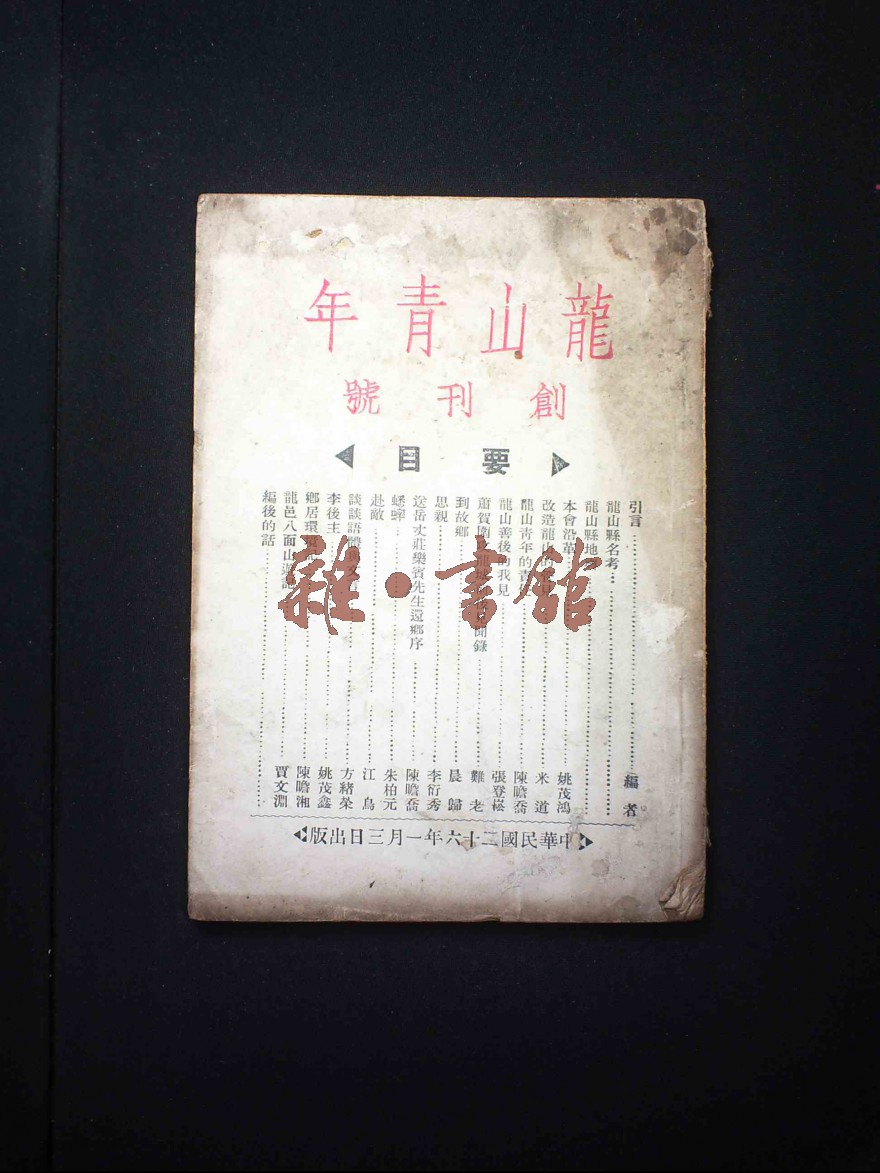 龍山青年
創刊號
要目
引言 編者
龍山縣名考
龍山縣地
本會沿革 姚茂鴻
改造龍山的 米道
龍山青年的責 陳瞻喬
龍山善後的我見 張登崧
蕭賀圍攻龍城 見聞錄 難老
到故鄉 晨歸
思親 李衍秀
送岳丈莊樂賓先生還鄉序 陳瞻喬
蟋蟀 朱柏元
赴敵 江鳥
談談語體 方緒榮
李後主 姚茂鑫
鄉居環境 陳瞻湘
龍邑八面山遊記 賈文淵
編後的話
中華民國二十六年一月三日出版
雜·書館